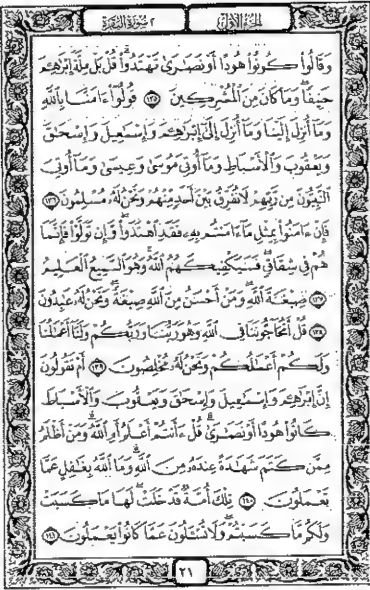 الجزء الأول
٢ سورة البقرة
وَقَالُوا۟ كُونُوا۟ هُودًا أَوْ نَصَٰرَىٰ تَهْتَدُوا۟ ۗ قُلْ بَلْ مِلَّةَ إِبْرَٰهِـۧمَ
حَنِيفًا ۖ وَمَا كَانَ مِنَ ٱلْمُشْرِكِينَ ١٣٥ قُولُوٓا۟ ءَامَنَّا بِٱللَّهِ
وَمَآ أُنزِلَ إِلَيْنَا وَمَآ أُنزِلَ إِلَىٰٓ إِبْرَٰهِـۧمَ وَإِسْمَٰعِيلَ وَإِسْحَٰقَ
وَيَعْقُوبَ وَٱلْأَسْبَاطِ وَمَآ أُوتِىَ مُوسَىٰ وَعِيسَىٰ وَمَآ أُوتِىَ
ٱلنَّبِيُّونَ مِن رَّبِّهِمْ لَا نُفَرِّقُ بَيْنَ أَحَدٍ مِّنْهُمْ وَنَحْنُ لَهُۥ مُسْلِمُونَ ١٣٦
فَإِنْ ءَامَنُوا۟ بِمِثْلِ مَآ ءَامَنتُم بِهِۦ فَقَدِ ٱهْتَدَوا۟ ۖ وَّإِن تَوَلَّوْا۟ فَإِنَّمَا
هُمْ فِى شِقَاقٍ ۖ فَسَيَكْفِيكَهُمُ ٱللَّهُ ۚ وَهُوَ ٱلسَّمِيعُ ٱلْعَلِيمُ
١٣٧ صِبْغَةَ ٱللَّهِ ۖ وَمَنْ أَحْسَنُ مِنَ ٱللَّهِ صِبْغَةً ۖ وَنَحْنُ لَهُۥ عَٰبِدُونَ
١٣٨ قُلْ أَتُحَآجُّونَنَا فِى ٱللَّهِ وَهُوَ رَبُّنَا وَرَبُّكُمْ وَلَنَآ أَعْمَٰلُنَا
وَلَكُمْ أَعْمَٰلُكُمْ وَنَحْنُ لَهُۥ مُخْلِصُونَ ١٣٩ أَمْ تَقُولُونَ
إِنَّ إِبْرَٰهِـۧمَ وَإِسْمَٰعِيلَ وَإِسْحَٰقَ وَيَعْقُوبَ وَٱلْأَسْبَاطَ
كَانُوا۟ هُودًا أَوْ نَصَٰرَىٰ ۗ قُلْ ءَأَنتُمْ أَعْلَمُ أَمِ ٱللَّهُ ۗ وَمَنْ أَظْلَمُ
مِمَّن كَتَمَ شَهَٰدَةً عِندَهُۥ مِنَ ٱللَّهِ ۗ وَمَا ٱللَّهُ بِغَٰفِلٍ عَمَّا
تَعْمَلُونَ ١٤٠ تِلْكَ أُمَّةٌ قَدْ خَلَتْ ۖ لَهَا مَا كَسَبَتْ
وَلَكُم مَّا كَسَبْتُمْ ۖ وَلَا تُسْـَٔلُونَ عَمَّا كَانُوا۟ يَعْمَلُونَ ١٤١
٢١